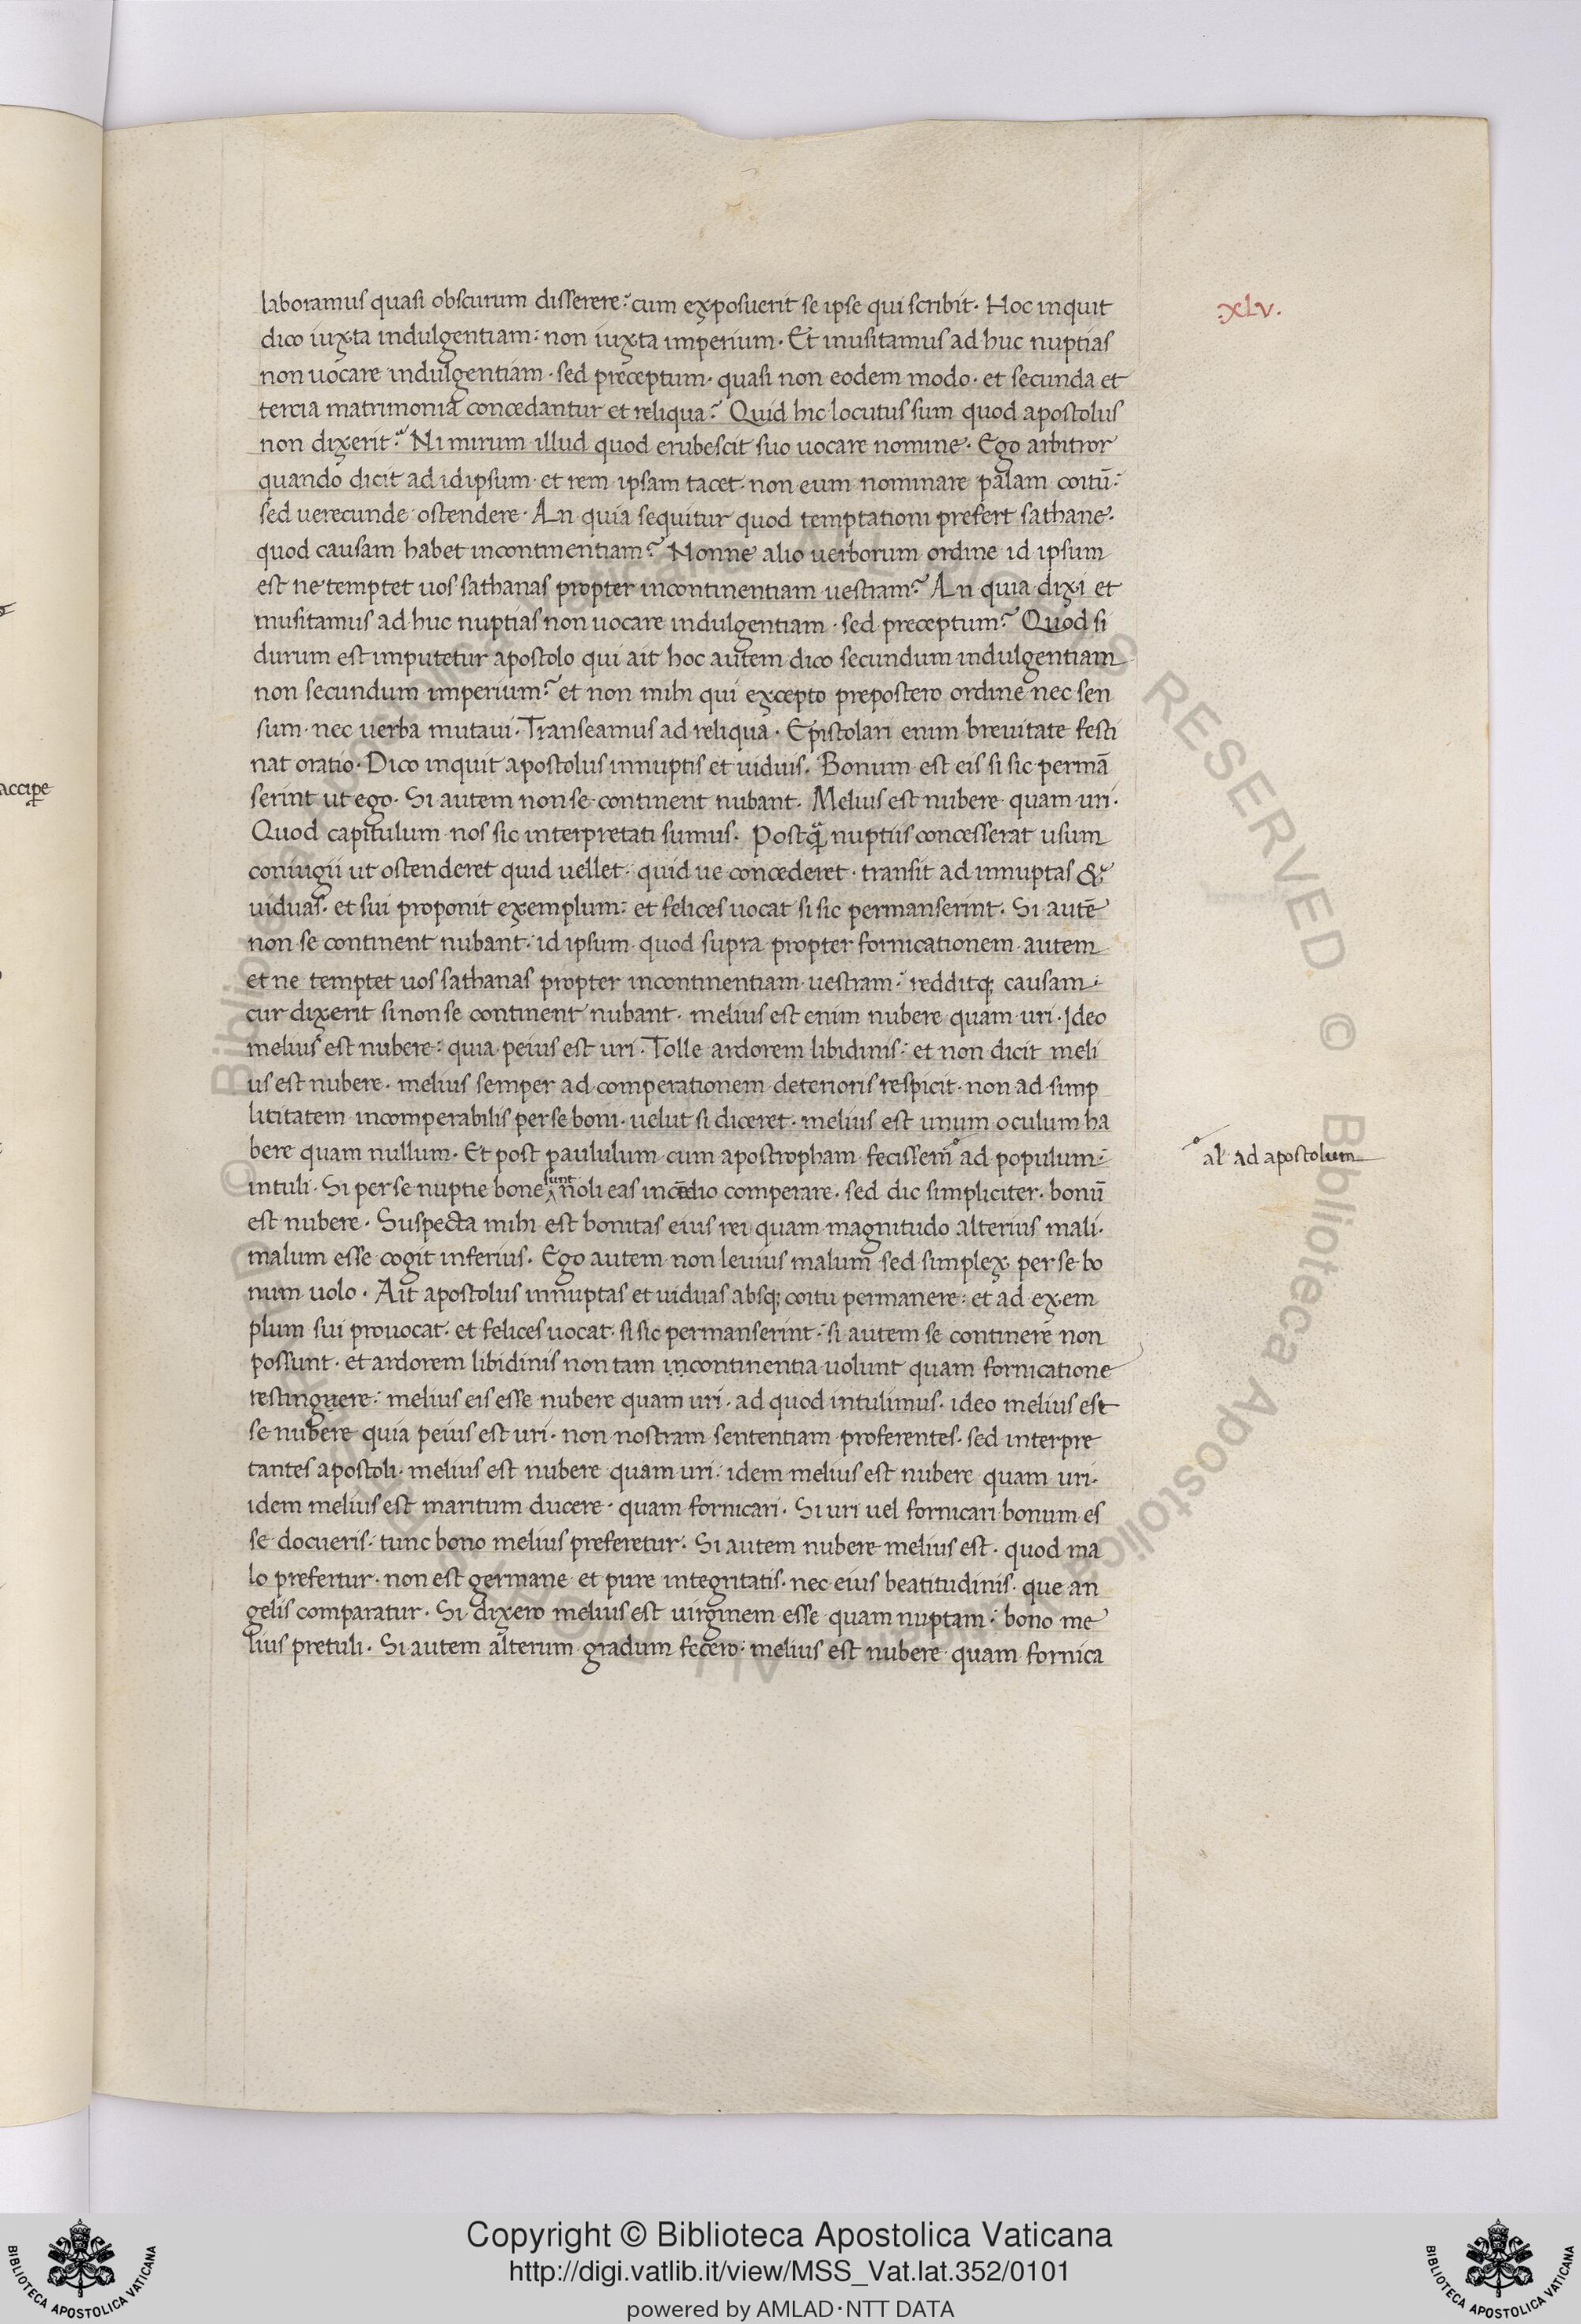 laboramus quasi obscurum disserere: cum exposuerit se ipse qui scribit. Hoc inquit
:xlv.
dico iuxta indulgentiam: non iuxta imperium. Et inusitamus ad huc nuptias
non uocare indulgentiam. sed preceptum. quasi non eodem modo. et secunda et
tercia matrimonia concedantur et reliqua? Quid hic locutus sum quod apostolus
non dixerit? Ni mirum illud quod erubescit suo uocare nomine. Ego arbitror
quando dicit ad id ipsum et rem ipsam tacet. non eum nominare palam coitū:
sed uerecunde ostendere. An quia sequitur quod temptationi prefert sathane.
quod causam habet incontinentiam? Nonne alio uerborum ordine id ipsum
est ne temptet uos sathanas propter incontinentiam uestram? An quia dixi et
musitamus ad huc nuptias non uocare indulgentiam. sed preceptum? Quod si
durum est imputetur apostolo qui ait hoc autem dico secundum indulgentiam
non secundum imperium? et non mihi qui excepto prepostero ordine nec sen
sum. nec uerba mutaui. Transeamus ad reliqua. Epistolari enim breuitate festi
nat oratio. Dico inquit apostolus innuptis et uiduis. Bonum est eis si sic permā
accipe
serint ut ego. Si autem non se continent nubant. Melius est nubere quam uri.
Quod capitulum nos sic interpretati sumus. Postq̄ nuptiis concesserat usum
coniugii ut ostenderet quid uellet. quid ue concederet. transit ad innuptas &
uiduas. et sui proponit exemplum: et felices uocat si sic permanserint. Si autē
non se continent nubant. id ipsum quod supra propter fornicationem autem
et ne temptet uos sathanas propter incontinentiam uestram: redditq; causam
cur dixerit si non se continent nubant. melius est enim nubere quam uri. Ideo
melius est nubere: quia peius est uri. Tolle ardorem libidinis: et non dicit meli
us est nubere. melius semper ad comperationem deterioris respicit. non ad simp
licitatem incomperabilis per se boni. uelut si diceret. melius est unum oculum ha
bere quam nullum. Et post paululum cum apostropham fecissem ad populum:
al' ad apostolum
intuli. Si per se nuptie bone sunt noli eas incēdio comperare. sed dic simpliciter. bonū
est nubere. Suspecta mihi est bonitas eius rei quam magnitudo alterius mali.
malum esse cogit inferius. Ego autem non leuius malum sed simplex per se bo
num uolo. Ait apostolus innuptas et uiduas absq; coitu permanere: et ad exem
plum sui prouocat. et felices uocat. si sic permanserint. si autem se continere non
possunt. et ardorem libidinis non tam incontinentia uolunt quam fornicatione
restinguere: melius eis esse nubere quam uri. ad quod intulimus. ideo melius est
se nubere quia peius est uri. non nostram sententiam proferentes. sed interpre
tantes apostoli. melius est nubere quam uri: idem melius est nubere quam uri.
idem melius est maritum ducere. quam fornicari. Si uri uel fornicari bonum es
se docueris: tunc bono melius preferetur. Si autem nubere melius est. quod ma
lo prefertur. non est germane et pure integritatis. nec eius beatitudinis. que an
gelis comparatur. Si dixero melius est uirginem esse quam nuptam: bono me
lius pretuli. Si autem alterum gradum fecero: melius est nubere quam fornica
Copyright © Biblioteca Apostolica Vaticana
http://digi.vatlib.it/view/MSS_Vat.lat.352/0101
powered by AMLAD·NTT DATA